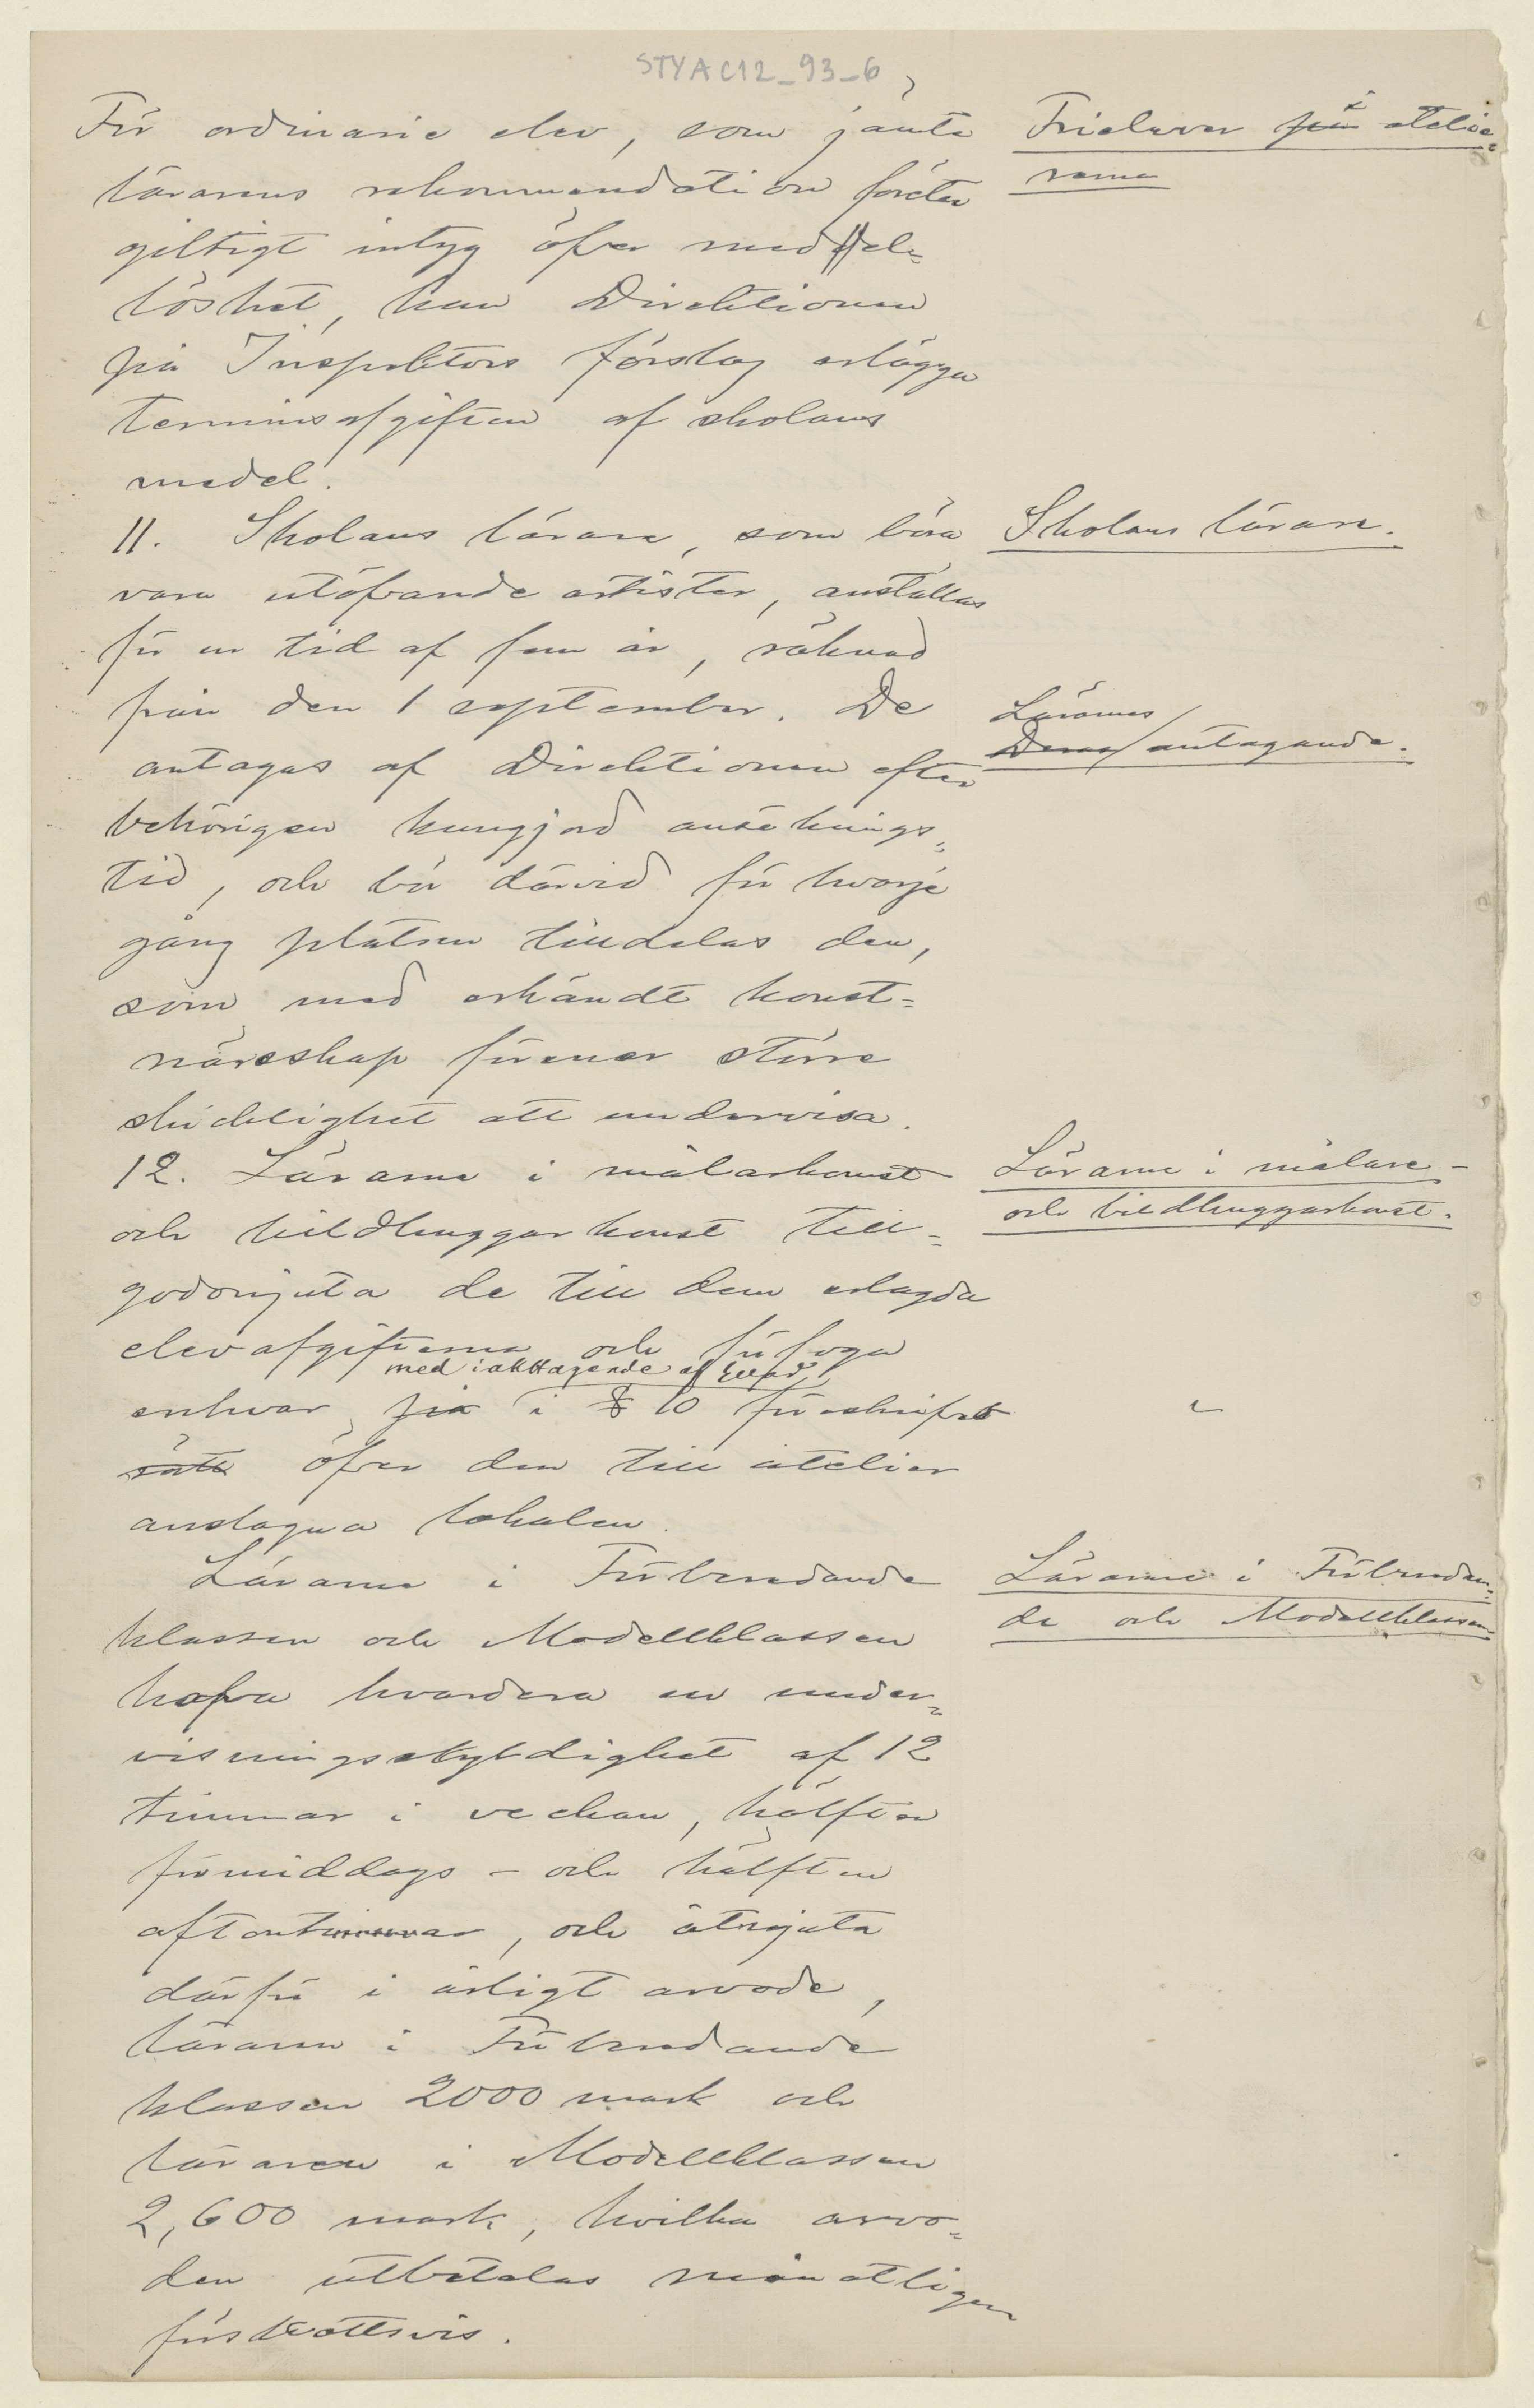 STYA C12_93_6
För ordinarie elev, som jämte
lärarens rekommendation företer
giltigt intyg öfver meddel=
löshet, kan Direktionen
på Inspektors förslag erlägga
terminsafgiften af skolans
medel.
Frielever på atelie=
rerna
11. Skolans lärare, som böra
vara utöfvande artister, anställas
för en tid af fem år, räknad
från den 1 september. De
antagas af Direktionen efter
behörigen kungjord ansöknings=
tid, och bör därvid för hvarje
gång platsen tilldelas den,
som med erkändt konst=
närsskap förenar större
skicklighet att undervisa.
Skolans lärare.
Lärarnes
Deras antagande.
12. Lärarne i målarkonst
och bildhuggarkonst till=
godonjuta de till dem erlagda
elevafgifterna och förfoga
med iakttagande af hvad
enhvar på i § 10 föreskrifvet
sätt öfver den till atelier
anslagna lokalen.
Lärarne i målare-
och bildhuggarkonst.
Lärarne i Förberedande
klassen och Modellklassen
hafva hvardera en under=
visningsskyldighet af 12
timmar i veckan, hälften
förmiddags- och hälften
aftontimmar, och åtnjuta
därför i årligt arvode,
läraren i Förberedande
klassen 2000 mark och
läraren i Modellklassen
2,600 mark, hvilka arvo=
den utbetalas månatligen
förskottsvis.
Lärarne i Förberedan=
de och Modellklassen